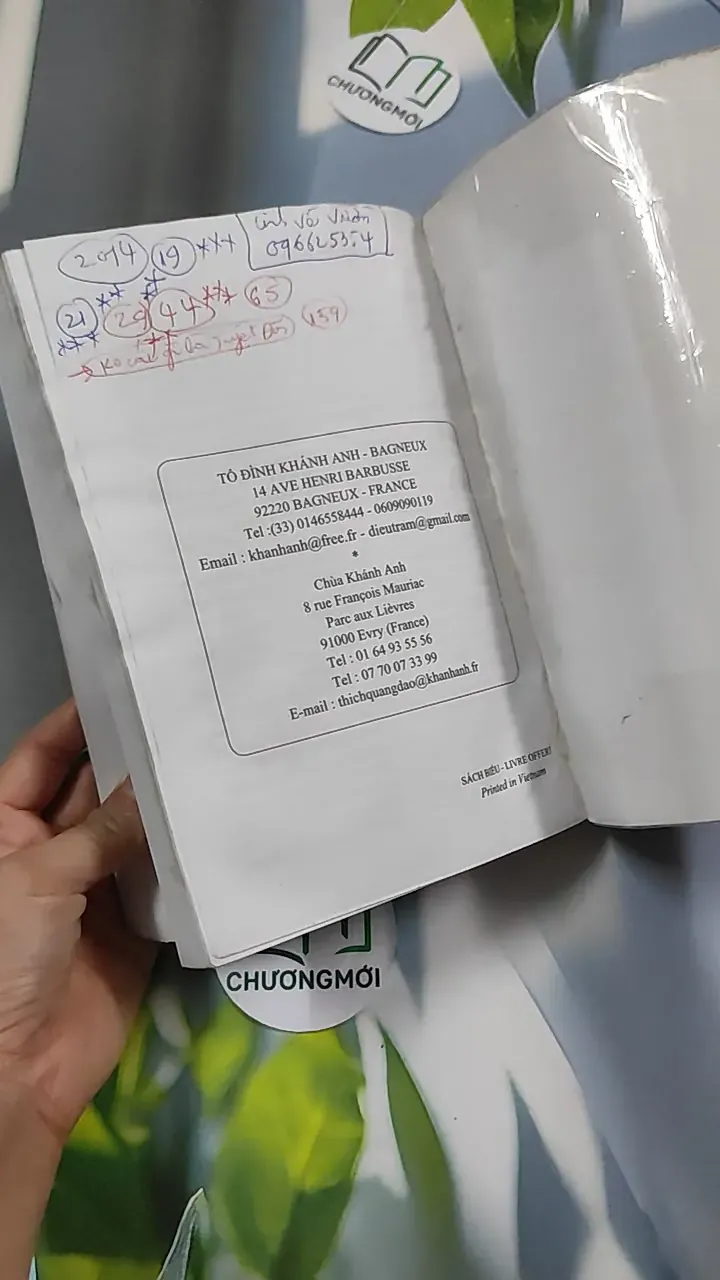 CHƯƠNGMỚI
204 19 ***
096625354
21 29 44 *** 65
159
TỔ ĐÌNH KHÁNH ANH - BAGNEUX
14 AVE HENRI BARBUSSE
92220 BAGNEUX - FRANCE
Tel :(33) 0146558444 - 0609090119
Email : khanhanh@free.fr - dieutram@gmail.com
*
Chùa Khánh Anh
8 rue François Mauriac
Parc aux Lièvres
91000 Evry (France)
Tel : 01 64 93 55 56
Tel : 07 70 07 33 99
E-mail : thichquangdao@khanhanh.fr
SÁCH BIẾU - LIVRE OFFERT
Printed in Vietnam
CHƯƠNGMỚI